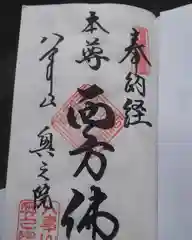 奉納経
本尊
西方佛
八事山
奥之院